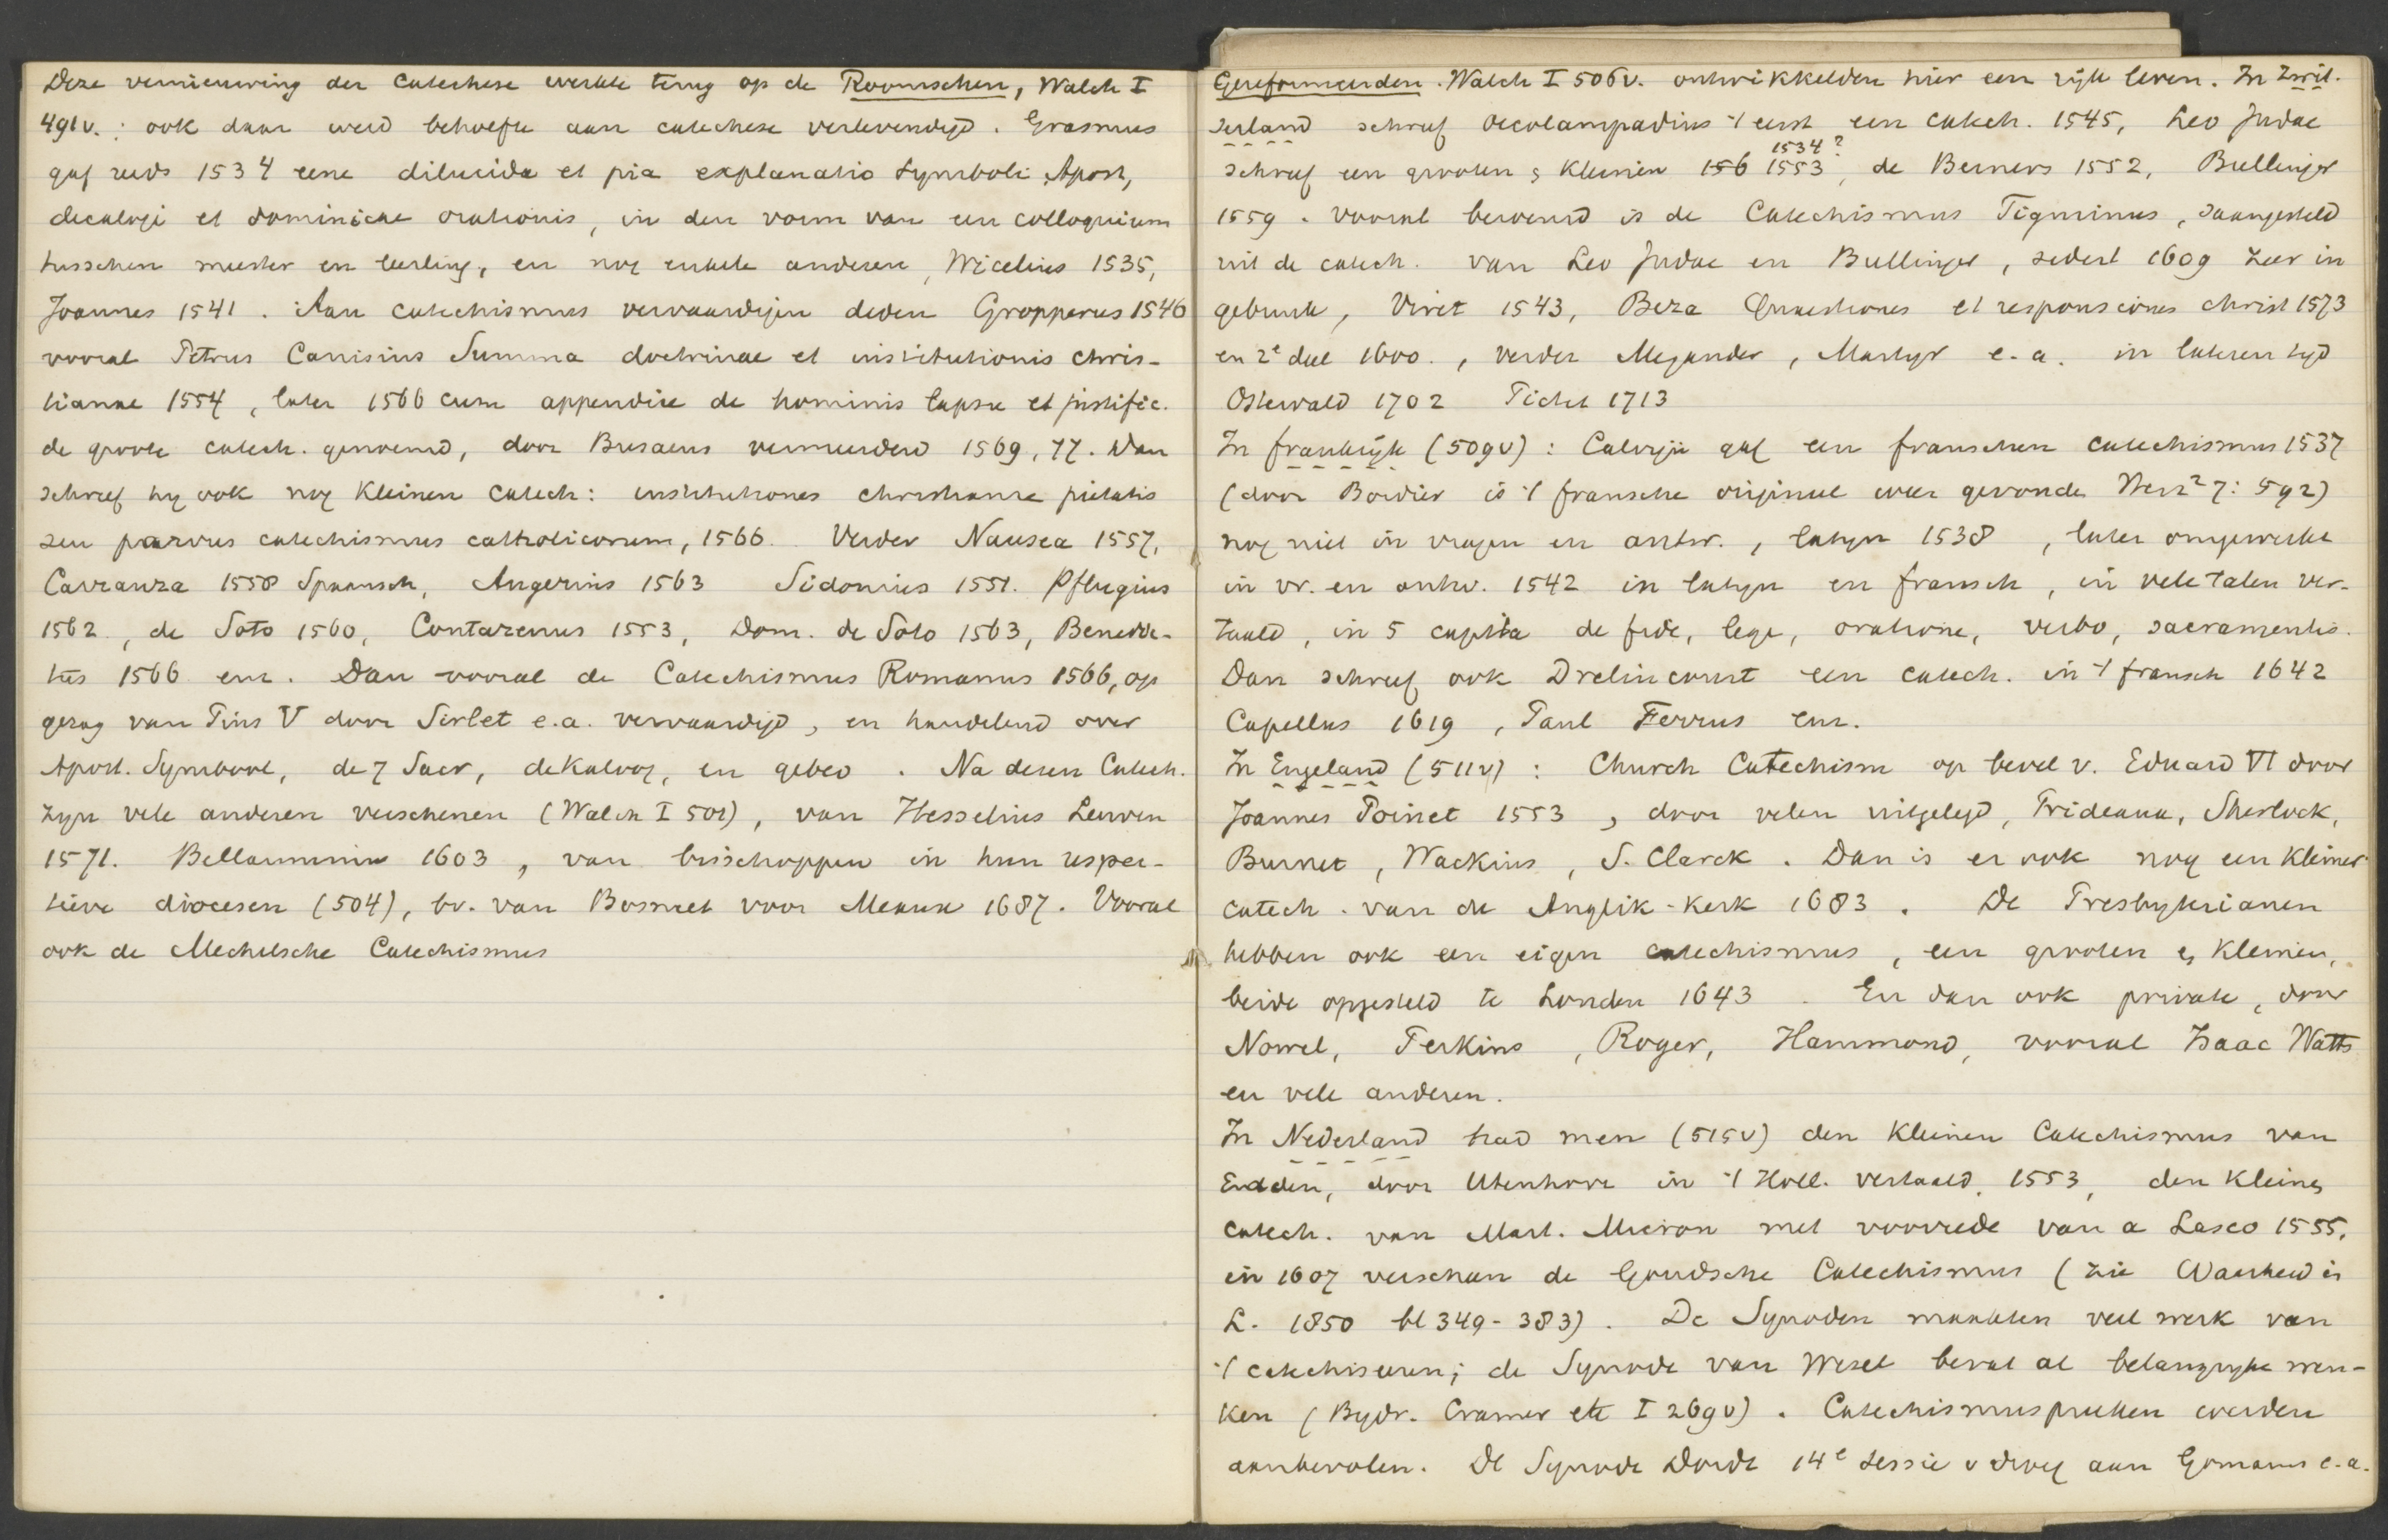 Deze vernieuwing der catechese werkte terug op de Roomschen, Walch I
491v.: ook daar werd behoefte aan catechese verlevendigd. Erasmus
gaf reeds 1534 eene dilucida et pia explanatio Symboli Apost,
decalogi et dominicae orationis, in den vorm van een colloquium
tusschen meester en leerling, en nog enkele anderen, Wicelius 1535,
Joannes 1541. Aan catechismus vervaardigen deden Gropperus 1546
vooral Petrus Canisius Summa doctrinae et institutionis chris-
tianae 1554, later 1566 cum appendice de hominis lapsu et justific.
de groote catech. genoemd, door Busaeus vermeerderd 1569, 77. Dan
schreef hy ook nog kleinen catech: institutiones christianae pietatis
seu parvus catechismus catholicorum, 1566. Verder Nausea 1557,
Carranza 1558 Spaansch, Angerius 1563 Sidonius 1551. Pflugius
1562, de Soto 1560, Contarenus 1553, Dom. de Soto 1563, Benedic-
tus 1566 enz. Dan vooral de Catechismus Romanus 1566, op
gezag van Pius V door Sirlet e.a. vervaardigd, en handelend over
Apost. Symbool, de 7 Sacr, dekaloog, en gebed. Na dezen Catech.
zyn vele anderen verschenen (Walch I 501), van Hesselius Leuven
1571. Bellarminus 1603, van bisschoppen in hun respec-
tieve diocesen (504), bv. van Bossuet voor Meaux 1687. Vooral
ook de Mechelsche Catechismus
Gereformeerden. Walch I 506v. ontwikkelden hier een rijk leven. In Zwit-
serland schreef Oecolampadius 't eerst een catech. 1545, Leo Judae
1534?
schreef een grooten & kleinen 156 1553, de Berners 1552, Bullinger
1559. vooral beroemd is de Catechismus Tigurinus, saamgesteld
uit de catech. van Leo Judae en Bullinger, sedert 1609 zeer in
gebruik, Viret 1543, Beza Quaestiones et responsiones christ 1573
en 2e deel 1600., verder Megander, Martyr e.a. in lateren tyd
Ostervald 1702 Pictet 1713
In frankrijk (509v): Calvijn gaf een franschen catechismus 1537
(door Bordier is 't fransche origineel weer gevonden Herz2 7: 592)
nog niet in vragen en antw., latyn 1538, later omgewerkt
in vr. en antw. 1542 in latyn en fransch, in vele talen ver-
taald, in 5 capita de fide, lege, oratione, verbo, sacramentis.
Dan schreef ook Drelincourt een catech. in 't fransch 1642
Capellus 1619, Paul Ferrus enz.
In Engeland (511v): Church Catechism op bevel v. Eduard VI door
Joannes Poinet 1553, door velen uitgelegd, Prideaux, Sherlock,
Burnet, Wackius, S. Clarck. Dan is er ook nog een kleiner
catech. van de Anglik-kerk 1683. De Presbyterianen
hebben ook een eigen catechismus, een grooten & kleinen,
beide opgesteld te Londen 1643. En dan ook private, door
Nowel, Perkins, Roger, Hammond, vooral Isaac Watts
en vele anderen.
In Nederland had men (515v) den kleinen Catechismus van
Emden, door Utenhove in 't Holl. vertaald 1553, den kleinen
catech. van Mart. Micron met voorrede van a Lasco 1555,
in 1607 verscheen de Goudsche Catechismus (zie Waarheid in
L. 1850 bl 349-383). De Synoden maakten veel werk van
't catechiseeren; de Synode van Wesel bevat al belangryke wen-
ken (Bydr. Cramer etc I 269v). Catechismuspreeken werden
aanbevolen. De Synode Dordr 14e sessie v droeg aan Gomarus e.a.